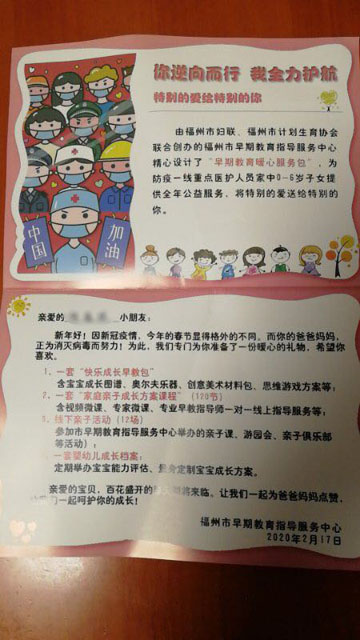 你逆向而行 我全力护航
特别的爱给特别的你
由福州市妇联、福州市计划生育协会
联合创办的福州市早期教育指导服务中心
精心设计了“早期教育暖心服务包”，为
防疫一线重点医护人员家中0-6岁子女提
供全年公益服务，将特别的爱送给特别的
你。
中国
加油
亲爱的 小朋友：
新年好！因新冠疫情，今年的春节显得格外的不同。而你的爸爸妈妈，
正为消灭病毒而努力！为此，我们专门为你准备了一份暖心的礼物，希望你
喜欢。
1、一套“快乐成长早教包”
含宝宝成长图谱、奥尔夫乐器、创意美术材料包、思维游戏方案等；
2、一套“家庭亲子成长方案课程”（120节）
含视频微课、专家微课、专业早教指导师一对一线上指导服务等；
3、线下亲子活动（12场）
参加市早期教育指导服务中心举办的亲子课、游园会、亲子俱乐部
等活动；
4、一套婴幼儿成长档案：
定期举办宝宝能力评估、量身定制宝宝成长方案。
亲爱的宝贝，百花盛开的 将来临，让我们一起为爸爸妈妈点赞，
一起呵护你的成长！
福州市早期教育指导服务中心
2020年2月17日